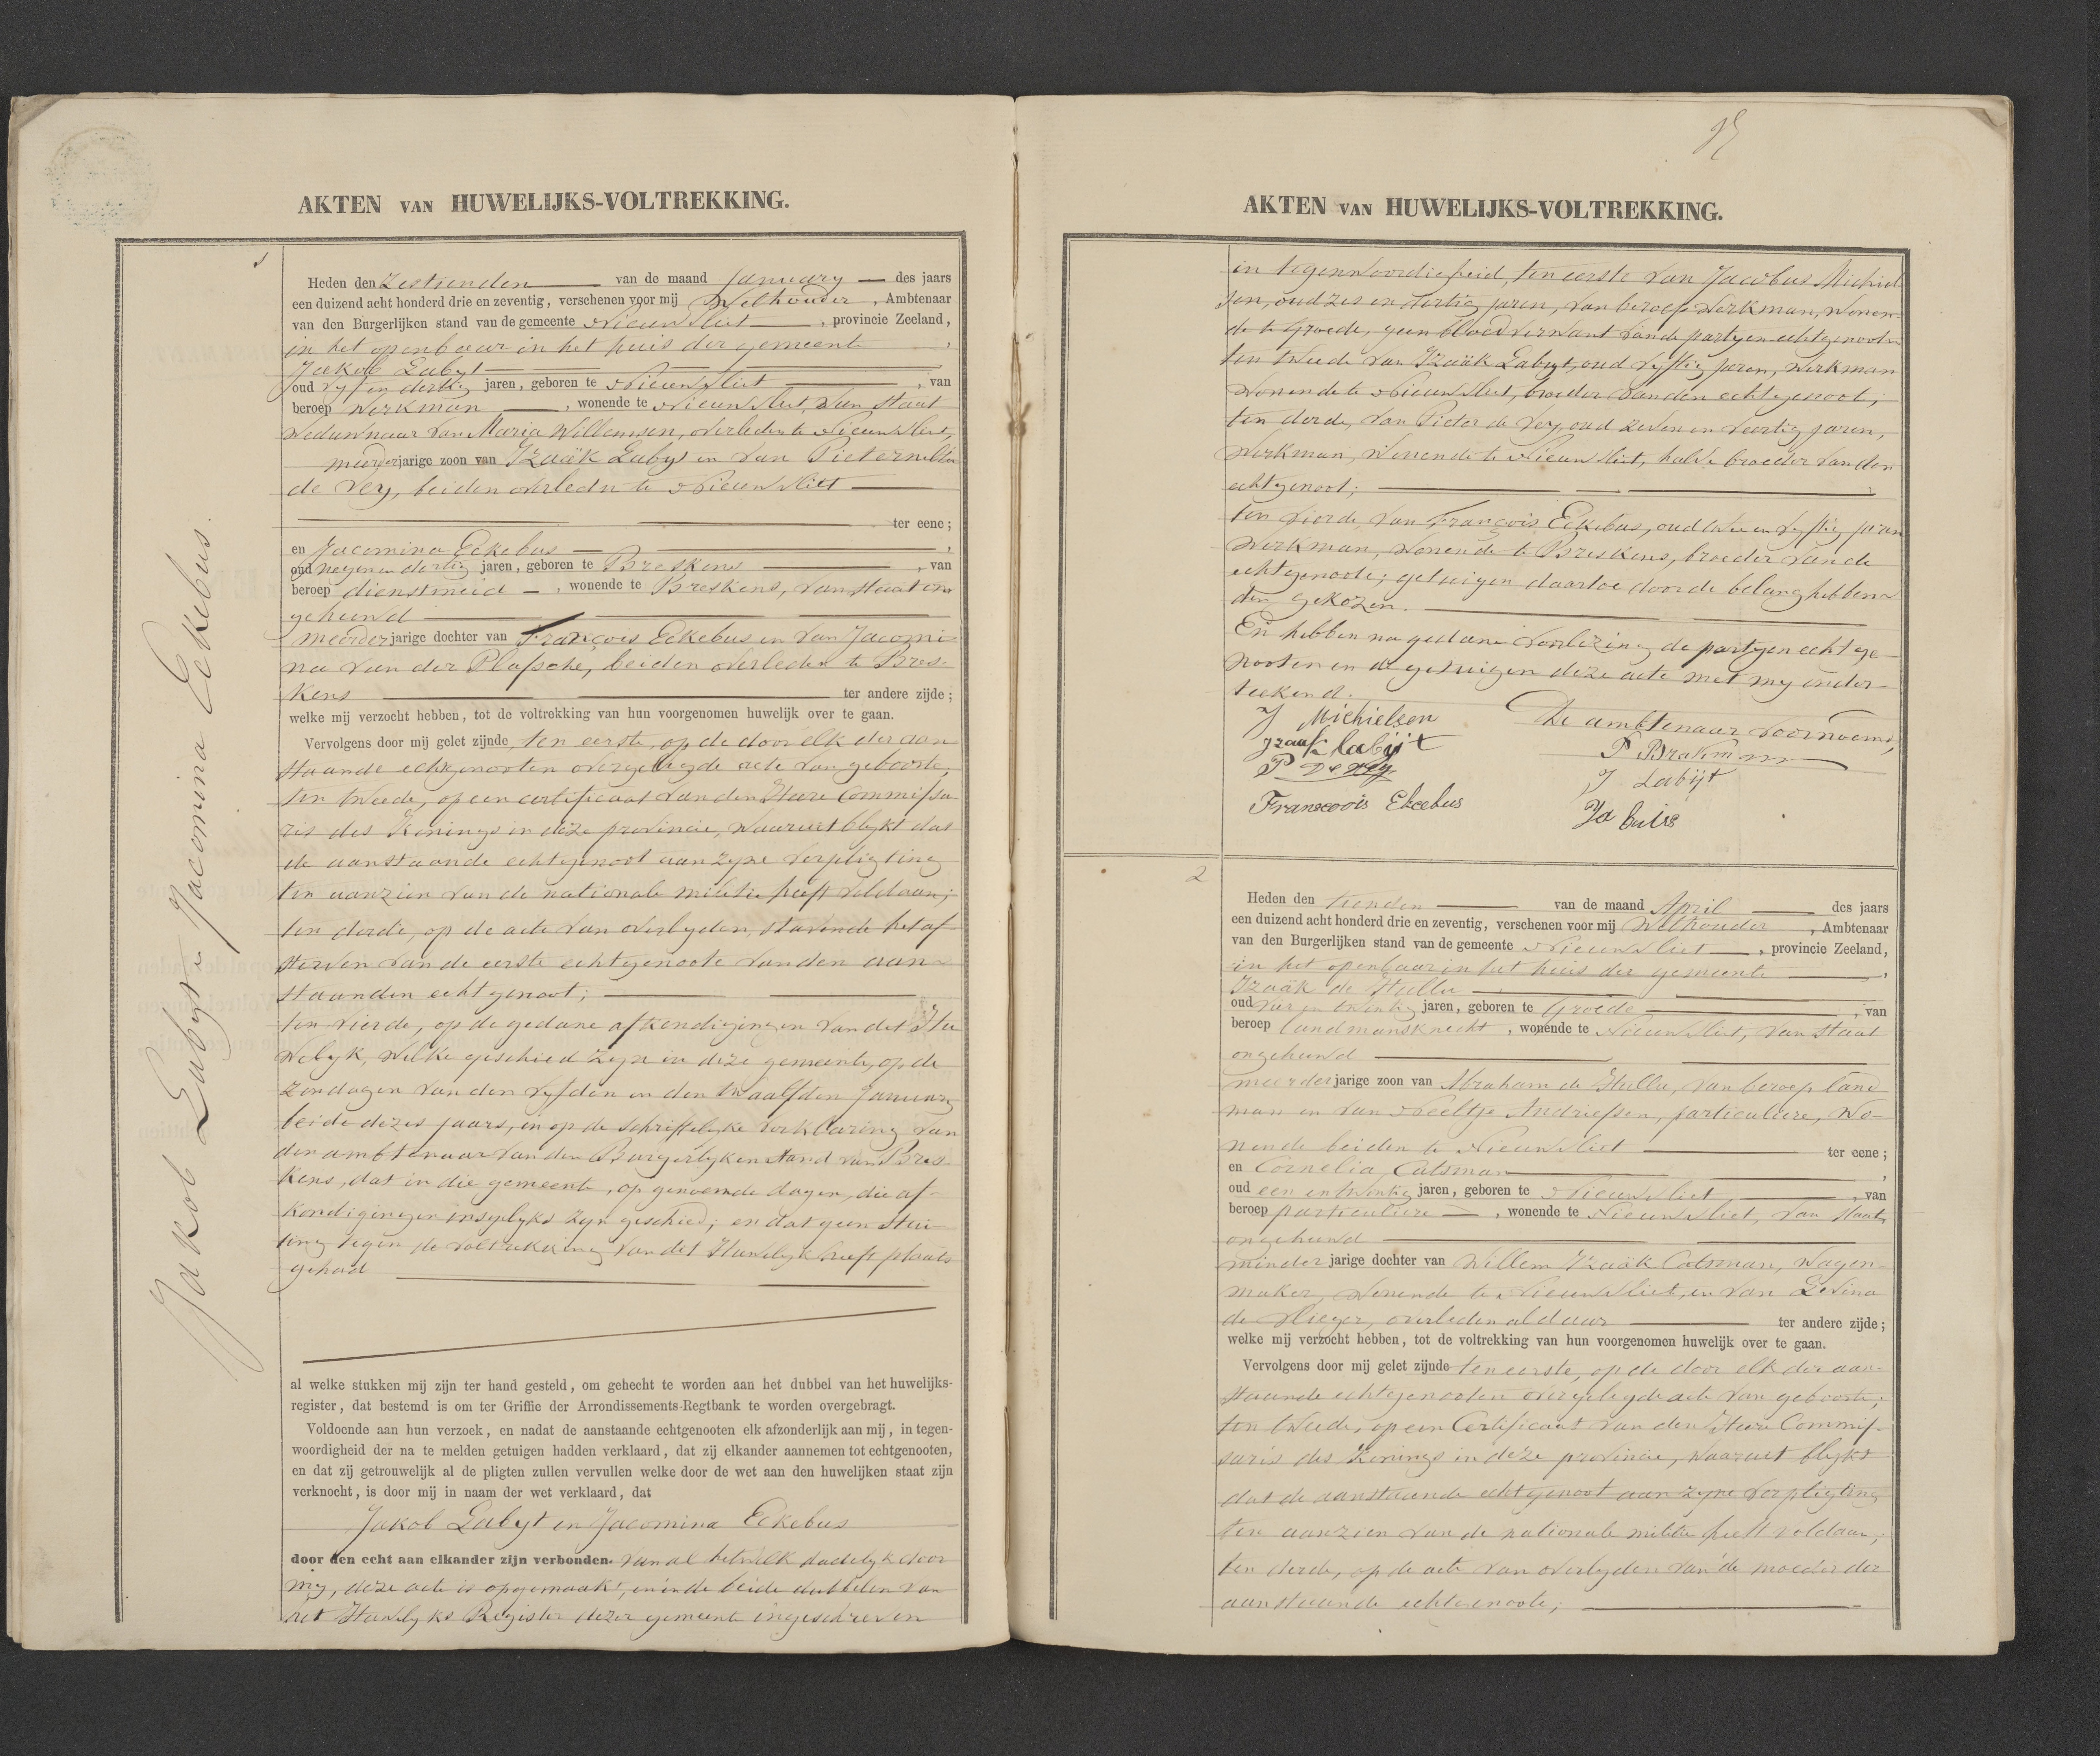 AKTEN VAN HUWELIJKS-VOLTREKKING.
1
Jakob Labyt & Jacomina Eckebus.
Heden den zestienden van de maand January des jaars
een duizend acht honderd drie en zeventig, verschenen voor mij Wethouder, Ambtenaar
van den Burgerlijken stand van de gemeente Nieuwvliet, provincie Zeeland,
in het openbaar in het huis der gemeente,
Jakob Labyt
oud vyf en dertig jaren, geboren te Nieuwvliet, van
beroep werkman, wonende te Nieuwvliet, van staat
weduwnaar van Maria Willemsen, overleden te Nieuwvliet,
meerderjarige zoon van Izaäk Labyt en van Pieternella
de Vey, beiden overleden te Nieuwvliet
ter eene;
en Jacomina Eckebus,
oud negen en dertig jaren, geboren te Breskens, van
beroep dienstmeid, wonende te Breskens, van staat on
gehuwd
meerderjarige dochter van François Eckebus en van Jacomi-
na van der Plassche, beiden overleden te Bres-
kens ter andere zijde;
welke mij verzocht hebben, tot de voltrekking van hun voorgenomen huwelijk over te gaan.
Vervolgens door mij gelet zijnde ten eerste, op de door elk der aan
staande echtgenooten overgelegde acte van geboorte,
ten tweede, op een certificaat van den Heere Commissa-
ris des Konings in deze provincie, waaruit blykt dat
de aanstaande echtgenoot aan zyne verpligting
ten aanzien van de nationale militie heeft voldaan;
ten derde, op de acte van overlyden, stavende het af-
sterven van de eerste echtgenoote van den aan-
staanden echtgenoot;
ten vierde, op de gedane afkondigingen van dit Hu
welyk, welke geschied zyn in deze gemeente, op de
zondagen van den vyfden en den twaalfden January
beide dezes jaars, en op de schriftelyke verklaring van
den ambtenaar van den Burgerlyken stand van Bres-
kens, dat in die gemeente, op genoemde dagen, die af-
kondigingen insgelyks zyn geschied; en dat geen stui-
ting tegen de voltrekking van dit Huwelyk heeft plaats
gehad
al welke stukken mij zijn ter hand gesteld, om gehecht te worden aan het dubbel van het huwelijks-
register, dat bestemd is om ter Griffie der Arrondissements-Regtbank te worden overgebragt.
Voldoende aan hun verzoek, en nadat de aanstaande echtgenooten elk afzonderlijk aan mij, in tegen-
woordigheid der na te melden getuigen hadden verklaard, dat zij elkander aannemen tot echtgenooten,
en dat zij getrouwelijk al de pligten zullen vervullen welke door de wet aan den huwelijken staat zijn
verknocht, is door mij in naam der wet verklaard, dat
Jakob Labyt en Jacomina Eckebus
door den echt aan elkander zijn verbonden. van al hetwelk dadelyk door
my, deze acte is opgemaakt, en in de beide dubbelen van
het Huwelyks Register dezer gemeente ingeschreven
AKTEN VAN HUWELIJKS-VOLTREKKING.
in tegenwoordigheid, ten eerste van Jacobus Michiel
sen, oud zes en dertig jaren, van beroep werkman, wonen
de te Groede, geen bloedverwant van de partyen echtgenooten
ten tweede van Izaäk Labyt, oud vyftig jaren, werkman
wonende te Nieuwvliet, broeder van den echtgenoot;
ten derde, van Pieter de Vey, oud zeven en veertig jaren,
werkman, wonende te Nieuwvliet, halve broeder van den
echtgenoot;
ten vierde, van François Eckebus, oud twee en vyftig jaren
werkman, wonende te Breskens, broeder van de
echtgenoote; getuigen daartoe door de belanghebben-
den gekozen.
En hebben na gedane voorlezing de partyen echtge-
nooten en de getuigen deze acte met my onder-
teekend.
J Michielsen
De ambtenaar voornoemd,
Izaak labijt
P Brakman
P De vey
J Labijt
Fransoois Ekcebus
2
Heden den tienden van de maand April des jaars
een duizend acht honderd drie en zeventig, verschenen voor mij Wethouder, Ambtenaar
van den Burgerlijken stand van de gemeente Nieuwvliet, provincie Zeeland,
in het openbaar in het huis der gemeente,
Izaäk de Hullu
oud vier en twintig jaren, geboren te Groede, van
beroep landmansknecht, wonende te Nieuwvliet, van staat
ongehuwd
meerderjarige zoon van Abraham de Hullu, van beroep land
man en van Neeltje Andriessen, particuliere, wo-
nende beiden te Nieuwvliet ter eene;
en Cornelia Catsman,
oud een en twintig jaren, geboren te Nieuwvliet, van
beroep particuliere, wonende te Nieuwvliet, van staat
ongehuwd
minderjarige dochter van Willem Izaäk Catsman, wagen-
maker, wonende te Nieuwvliet, en van Levina
de Vlieger, overleden aldaar ter andere zijde;
welke mij verzocht hebben, tot de voltrekking van hun voorgenomen huwelijk over te gaan.
Vervolgens door mij gelet zijnde ten eerste, op de door elk der aan-
staande echtgenooten overgelegde acte van geboorte;
ten tweede, op een Certificaat van den Heere Commis-
saris des Konings in deze provincie, waaruit blykt
dat de aanstaande echtgenoot aan zyne verpligting
ten aanzien van de nationale militie heeft voldaan;
ten derde, op de acte van overlyden van de moeder der
aanstaande echtgenoote;